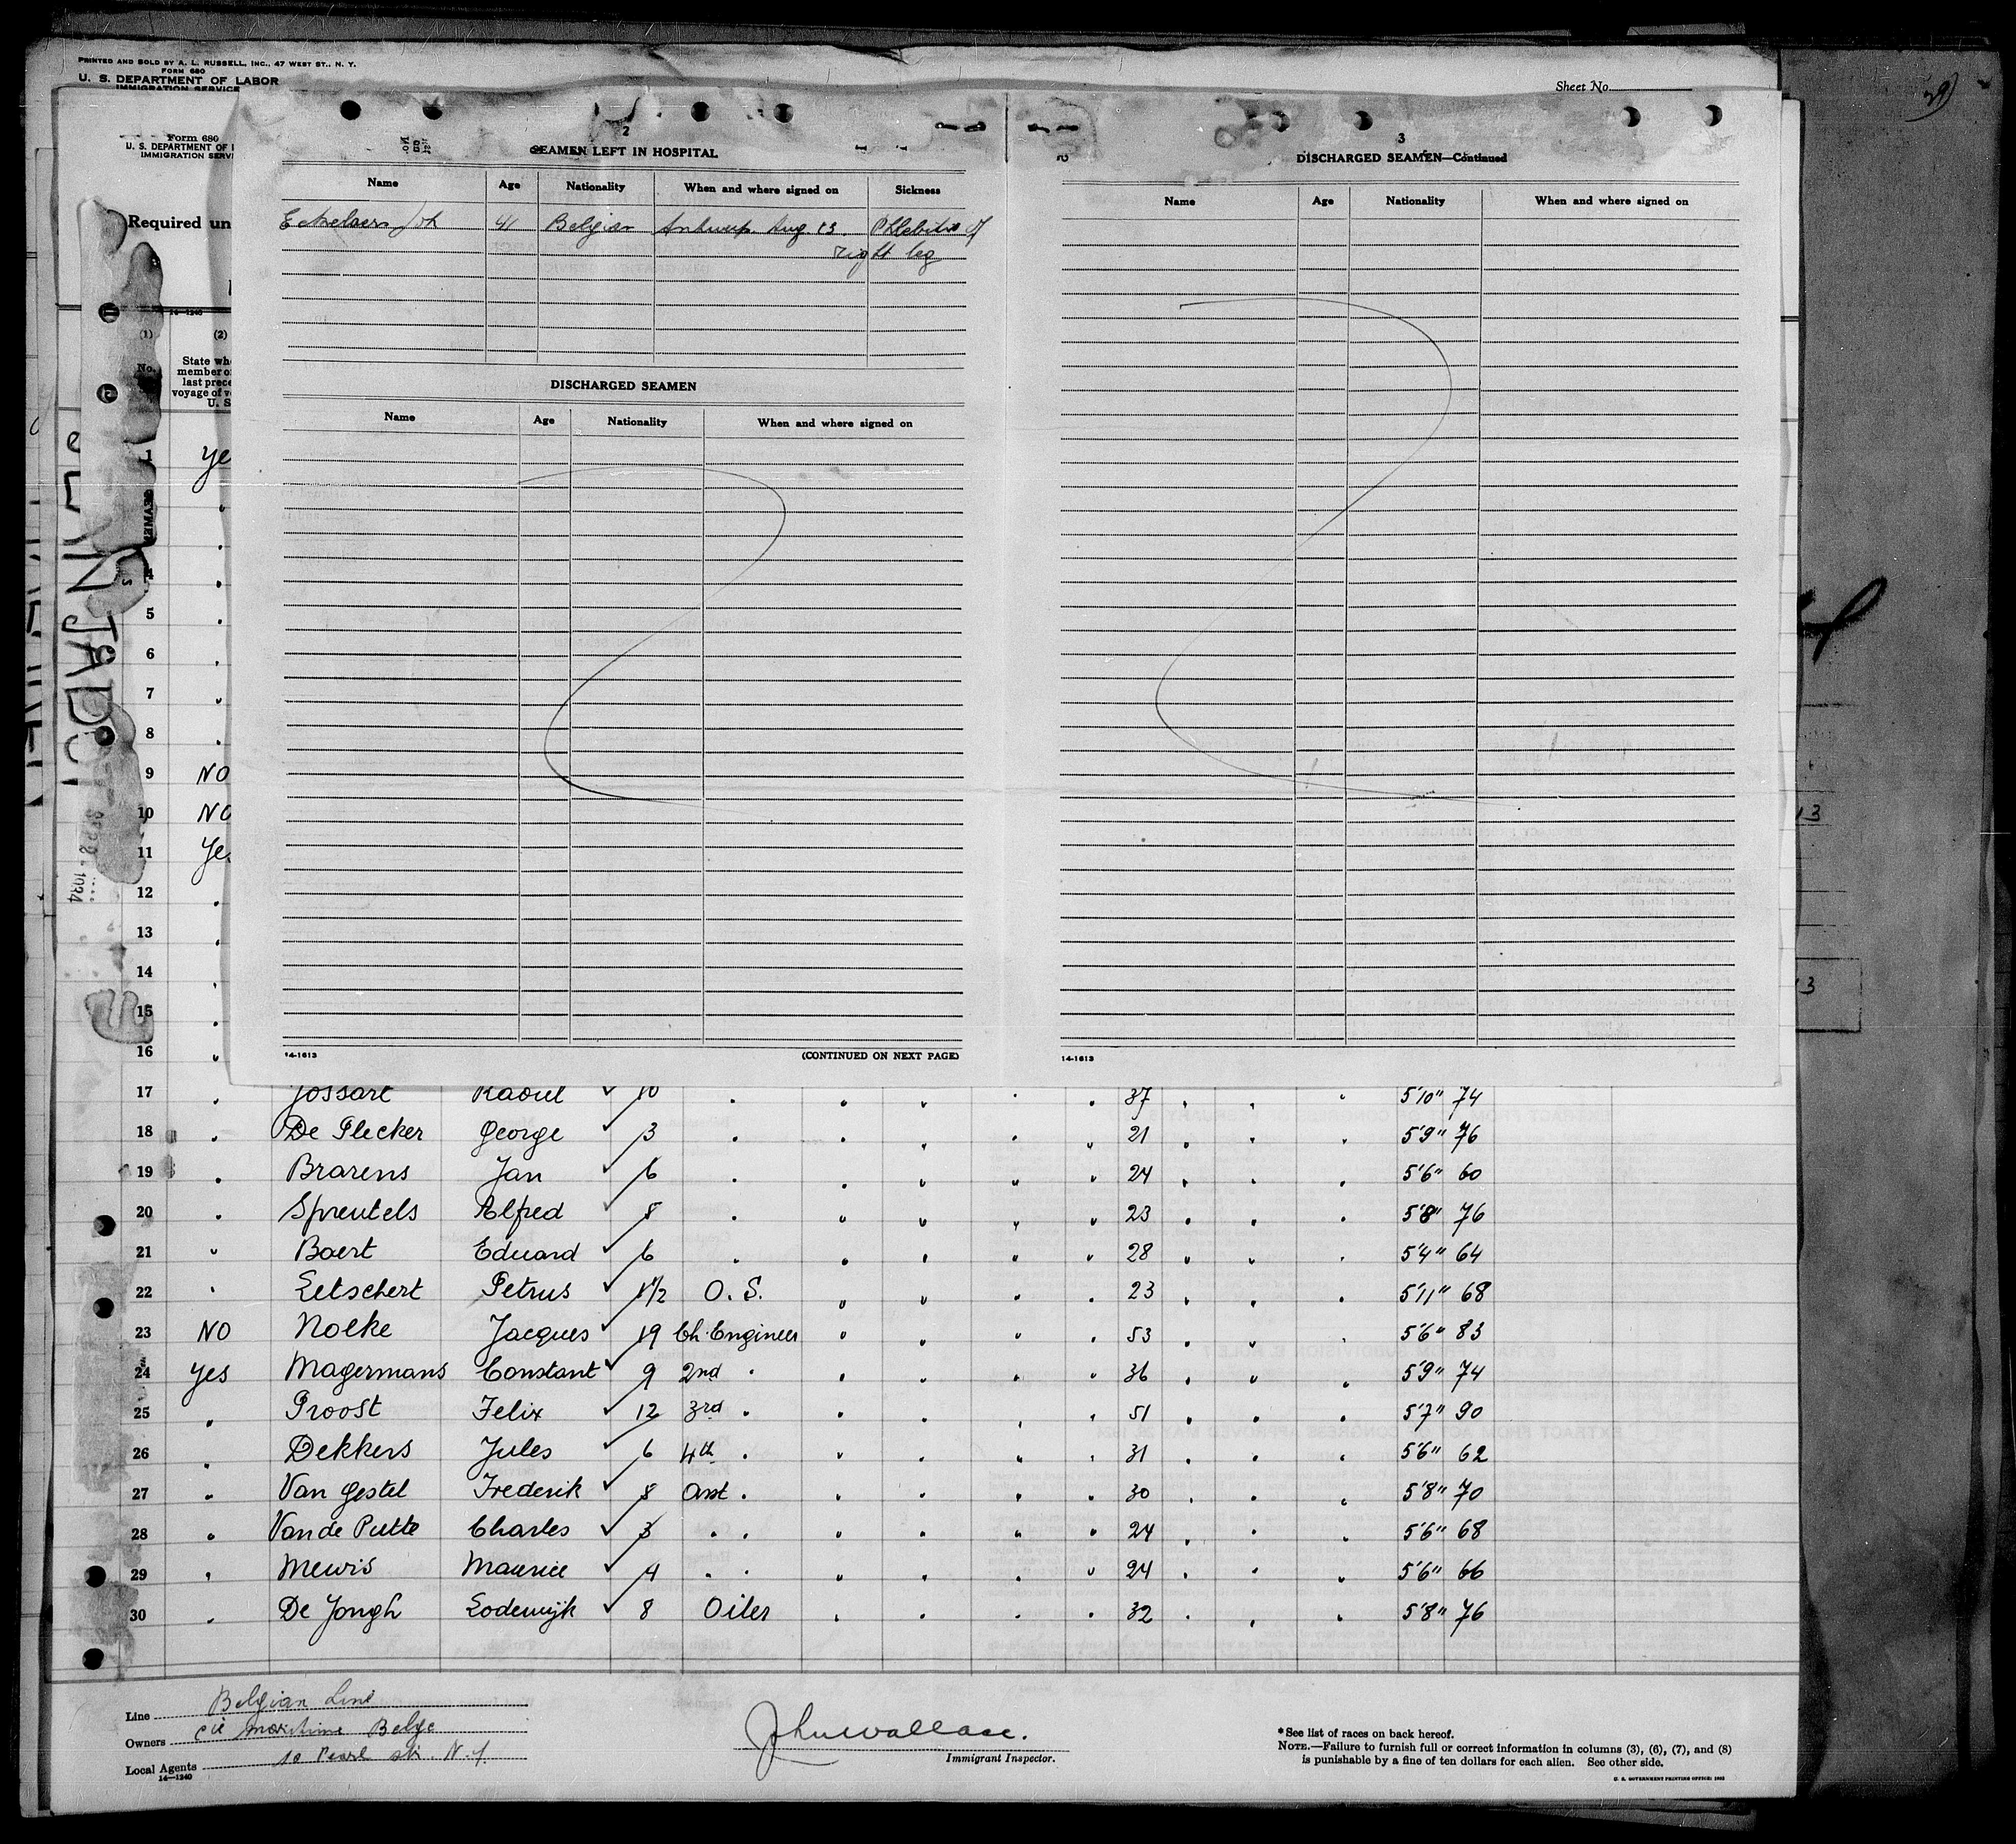 PRINTED AND SOLD BY A. L. RUSSELL, INC., 47 WEST ST., N. Y.
FORM 680
U. S. DEPARTMENT OF LABOR
IMMIGRATION SERVICE
Sheet No.
Form 680
U. S. DEPARTMENT OF
IMMIGRATION SERV
Required un
14-1240
(1) (2)
No.
State wh
member o
last prece
voyage of v
U. S
2
SEAMEN LEFT IN HOSPITAL
Name Age Nationality When and where signed on Sickness
41 Belgian Antwerp. Aug. 13. Phlebitis of
right leg
DISCHARGED SEAMEN
Name Age Nationality When and where signed on
14-1613 (CONTINUED ON NEXT PAGE)
3
DISCHARGED SEAMEN—Continued
Name Age Nationality When and where signed on
14-1613
1 Ye
4
5
6
7
8
9 NO
10 NO
11 Ye
12
13
14
15
16
17 Jossart Raoul 10 37 5'10" 74
18 De Plecker George 3 21 5'9" 76
19 Brarens Jan 6 24 5'6" 60
20 Spreutels Alfred 8 23 5'8" 76
21 Baert Eduard 6 28 5'4" 64
22 Letschert Petrus 1 1/2 O. S. 23 5'11" 68
23 NO Nolke Jacques 19 Ch. Engineer 53 5'6" 83
24 Yes Magermans Constant 9 2nd 36 5'9" 74
25 Proost Felix 12 3rd 51 5'7" 90
26 Dekkers Jules 6 4th 31 5'6" 62
27 Van Gestel Frederik 8 Asst. 30 5'8" 70
28 Van de Putte Charles 3 24 5'6" 68
29 Mewis Maurice 4 24 5'6" 66
30 De Jongh Lodewijk 8 Oiler 32 5'8" 76
Line Belgian Line
Owners Cie Maritime Belge
Local Agents 10 Pearl str. N.Y.
14-1240
John Wallace.
Immigrant Inspector.
*See list of races on back hereof.
NOTE.—Failure to furnish full or correct information in columns (3), (6), (7), and (8)
is punishable by a fine of ten dollars for each alien. See other side.